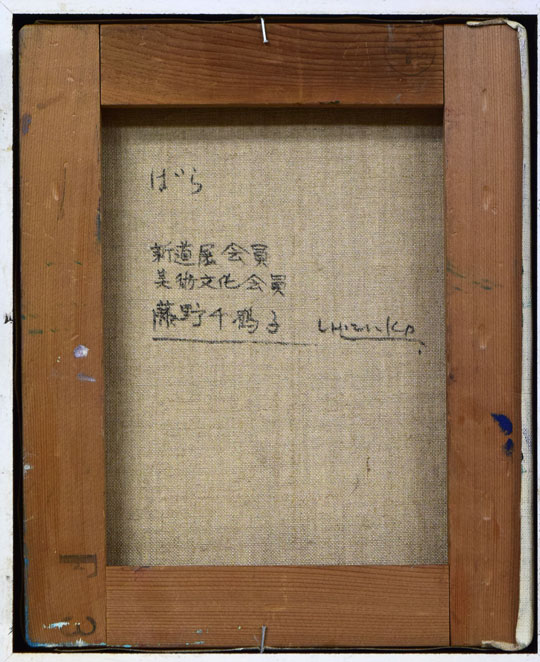 ばら
新道展会員
美術文化会員
藤野千鶴子 Chizuko
F
3